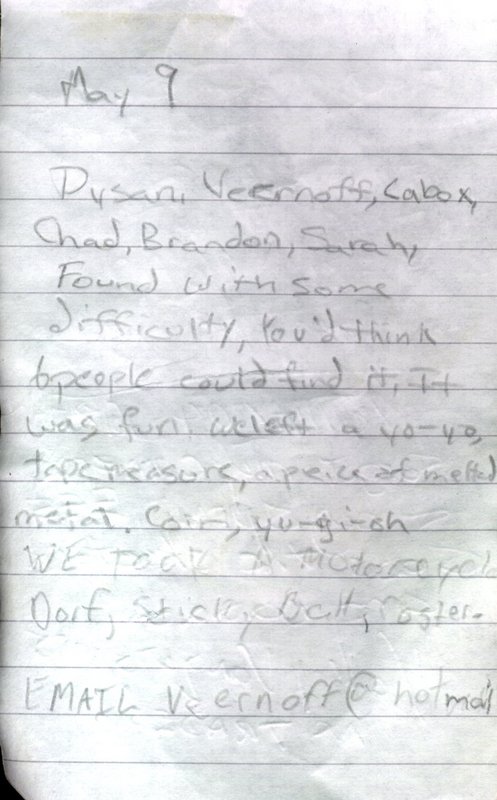 May 9
Dysan, Veernoff, Cabox,
Chad, Brandon, Sarah,
Found with some
difficulty, You'd think
6people could find it, It
was fun. we left a yo-yo,
tape measure, a peice of melted
metal. Coin, yu-gi-oh
WE TOOK A Motorcycl
Dorf, Stick, Belt,
EMAIL Veernoff@hotmail